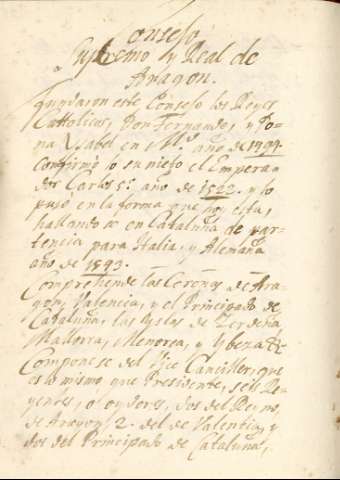 Consejo
Supremo y Real de
Aragon.
Fundaron este Consejo los Reyes
Cattolicos, Don Fernando, y Do-
na Ysabel en M.d año de 1494.
confirmó lo su nieto el Empera-
dor Carlos 5º. año de 1522. y lo
puso en la forma que hoy esta,
hallandose en Cataluña de par-
tencia para Italia, y Alemaña
año de 1543.
Comprehende las Coronas de Ara-
gon, Valencia, y el Principado de
Cataluña, las Yslas de Zerdeña,
Mallorca, Menorca, y Ybeza &c.
Componese del Vice Canciller, que
es lo mismo que Presidente, seis Re-
gentes, o oydores, dos del Reyno
de Aragon, 2. del de Valentia, y
dos del Principado de Cataluña,